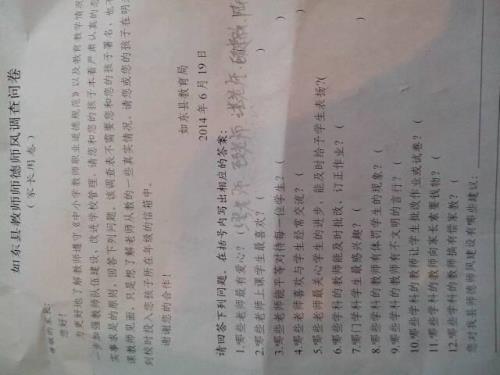 如东县教师师德师风调查问卷
（家长用卷）
尊敬的家长：
您好！
为更好地了解教师遵守《中小学教师职业道德规范》以及教育教学情况
一步加强教师队伍建设，改进学校管理，请您和您的孩子本着严肃认真的态
实事求是的原则，回答下列问题。该调查表不需要您和您的孩子署名，也不
课教师见面，只是想了解老师从教的一些真实情况。请您或您的孩子在明
到校时投入您孩子所在年级的信箱中。
谢谢您的合作！
如东县教育局
2014年6月19日
请回答下列问题，在括号内写出相应的答案：
1.哪些老师最有爱心？（
2.哪些老师上课学生最喜欢？（
3.哪些老师能平等对待每一位学生？（
4.哪些老师喜欢与学生经常交流？（
5.哪些老师最关心学生的进步，能及时给予学生表扬？（
6.哪些学科的教师能及时批改、订正作业？（
7.哪门学科学生最感兴趣？（
8.哪些学科的教师有体罚学生的现象？（
9.哪些学科的教师有不文明的言行？（
10.哪些学科的教师让学生批改作业或试卷？（
11.哪些学科的教师向家长索要钱物？（
12.哪些学科的教师搞有偿家教？（
您对我县师德师风建设有哪些建议